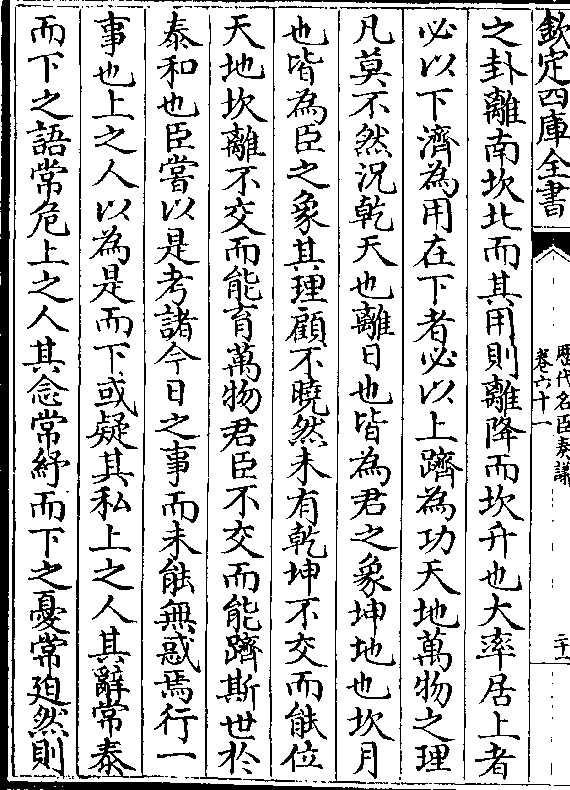 欽定四庫全書
歷代名臣奏議
卷六十一
二十一
之卦離南坎北而其用則離降而坎升也大率居上者
必以下濟為用在下者必以上躋為功天地萬物之理
凡莫不然況乾天也離日也皆為君之象坤地也坎月
也皆為臣之象其理顧不曉然未有乾坤不交而能位
天地坎離不交而能育萬物君臣不交而能躋斯世於
泰和也臣嘗以是考諸今日之事而未能無惑焉行一
事也上之人以為是而下或疑其私上之人其辭常泰
而下之語常危上之人其念常紓而下之憂常廹然則